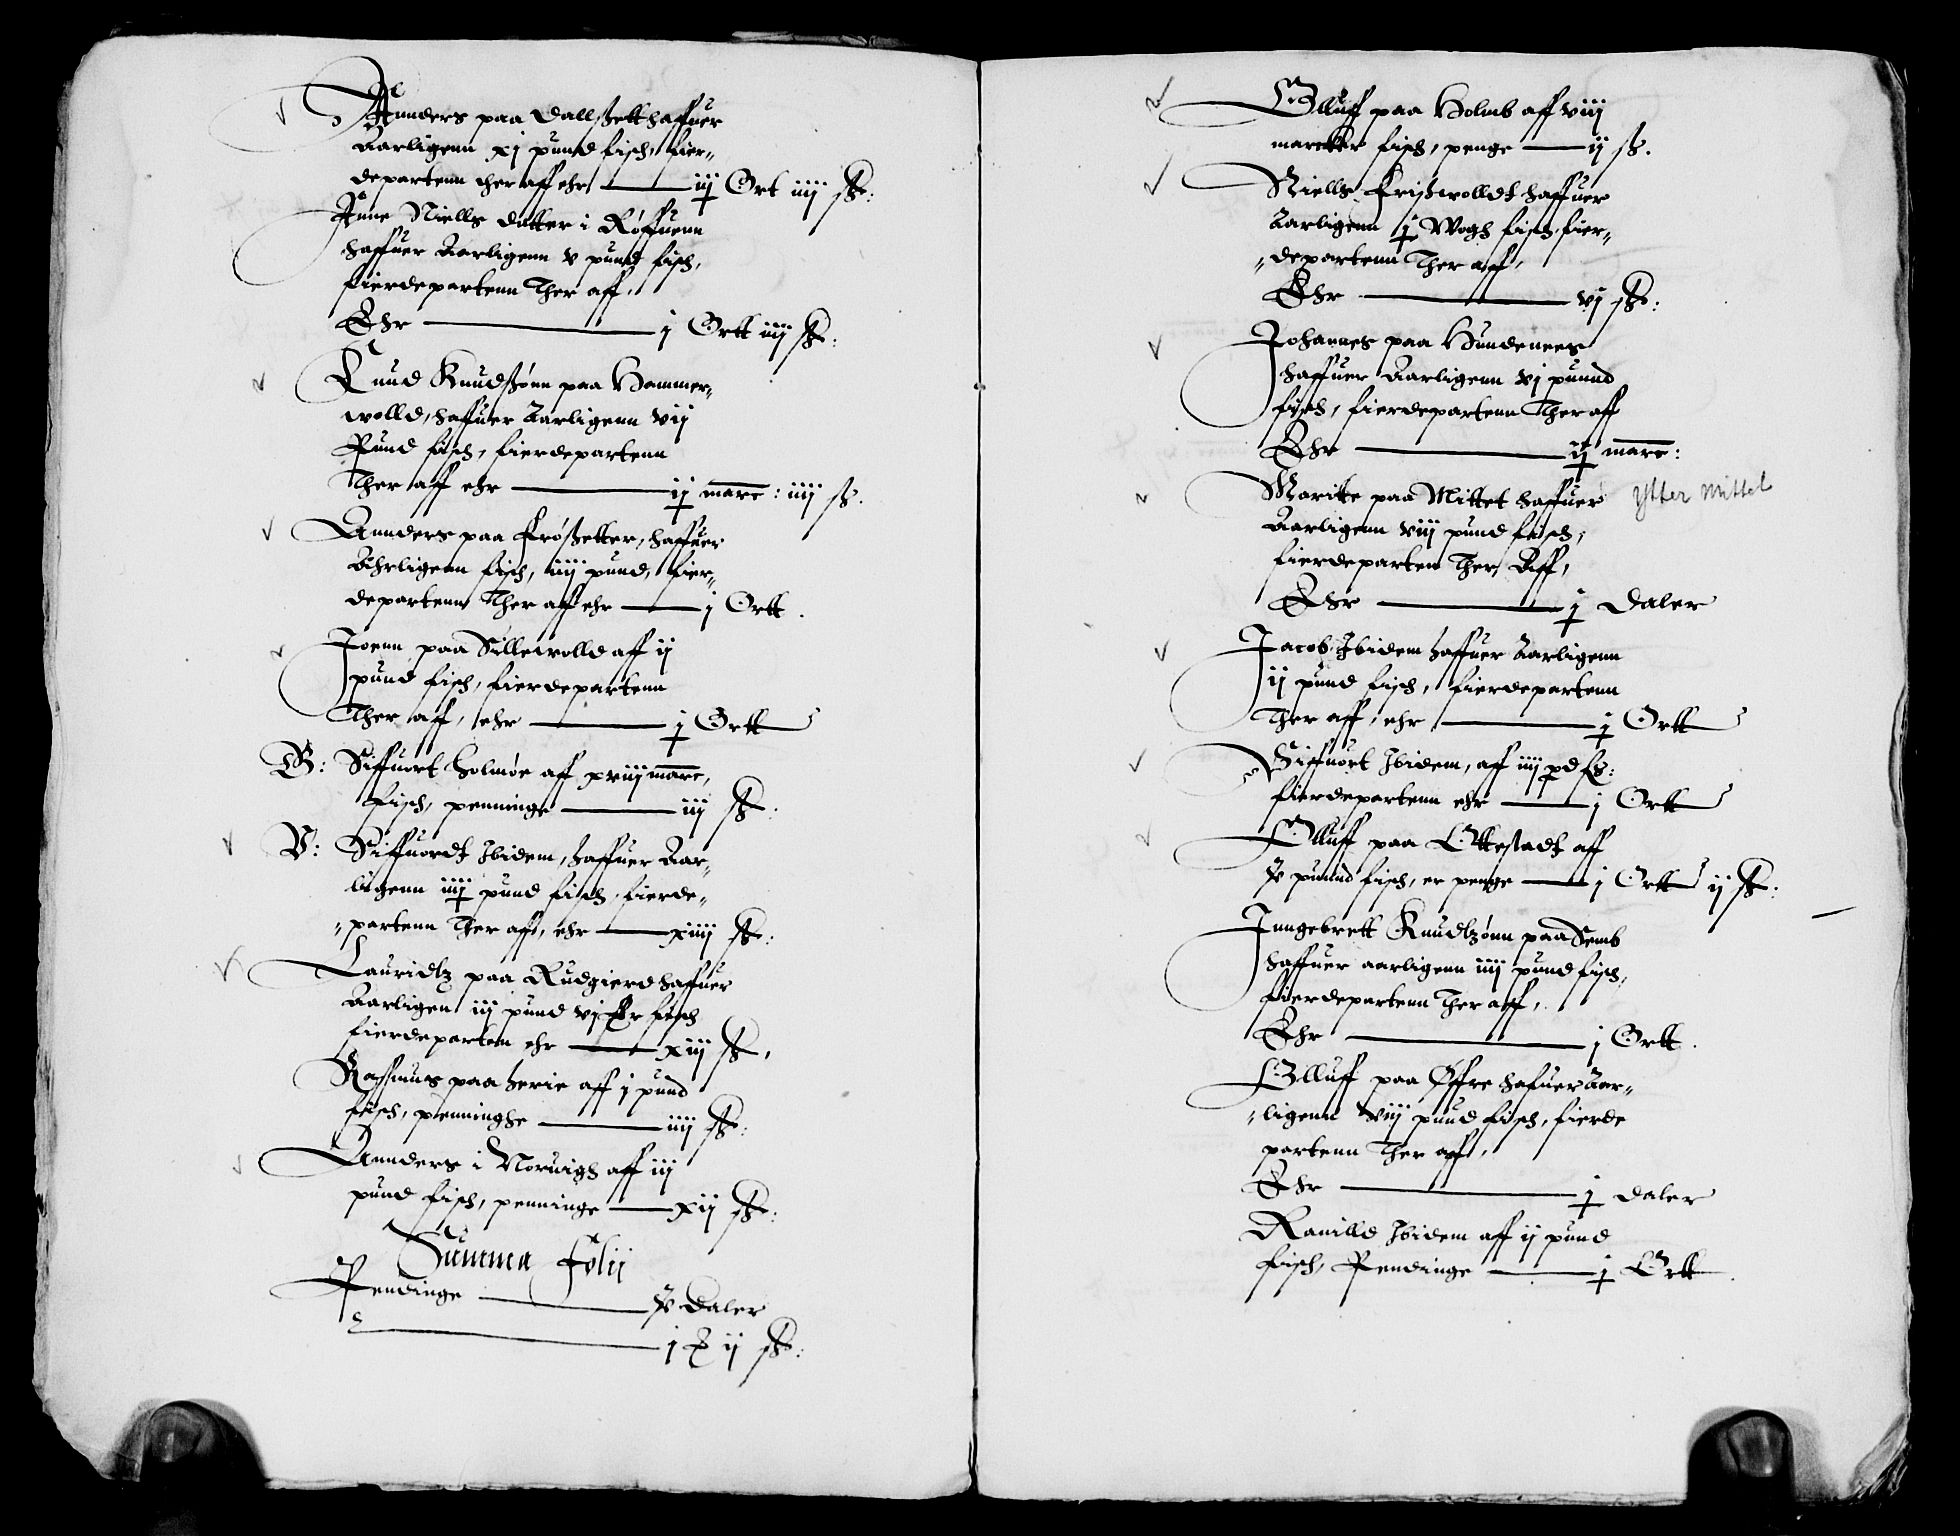 Annders paa Dallßett haffuer
Aarligenn xj pund fisch, fier-
departenn ther aff ehr —— iij Ort iiij ß:
Anne Niells datter i Røffuenn
haffuer Aarligenn v pund fisch,
fierdepartenn Ther aff,
Ehr —— j Ortt iiij ß:
Knud Knudßønn paa Hammer-
wolld, haffuer Aarligenn vij
Pund fisch, fierdepartenn
Ther aff ehr —— ij marc: iiij ß.
Annders paa Frøßetter, haffuer
Ahrligenn fisch, iiij pund, fier-
departenn Ther aff ehr —— j Ortt.
Joenn paa Sillewolld aff ij
pund fisch, fierdepartenn
Ther aff, ehr —— j Ortt
B: Siffuort Holmøe aff xviij marc,
fisch, penninge —— iij ß:
V: Siffuordt Ibidem, haffuer Aar-
ligenn iiij pund fisch, fierde-
partenn Ther aff, ehr —— xiiij ß:
Lauridtz paa Rudgierd haffuer
Aarligen iij pund vj fisch
fierdeparten ehr —— xiij ß,
Rassmus paa Herie aff j pund
fisch, penninghe —— iiij ß:
Annders i Norvigh aff iij
pund fisch, penninge —— xij ß:
Summa Folij
Pendinge —— daler
—— j ij ß:
Olluff paa Holmb aff viij
marcker fisch, penge —— ij ß.
Niells Frißwolldt haffuer
Aarligenn j Wogh fisch, fier-
departenn Ther aff,
Ehr —— vj ß:
Johannes paa Hundenees
haffuer Aarligenn vj puund
fisch, fierdepartenn Ther aff
Ehr —— ij marc:
Maritte paa Mittet haffuer Ytter Mittel
Aarligenn viij pund fisch,
fierdeparten Ther Aff,
Ehr —— j Daler
Jacob Ibidem haffuer Aarligenn
ij pund fisch, fierdepartenn
Ther aff, ehr —— j Ortt
Siffuort Ibidem, aff iiij pd fs:
fierdepartenn ehr —— j Ortt
Olluff paa Ottestadt aff
puund fisch, er penge —— j Ortt ij ß:
Inngebrett Knudtzønn paa Semb
haffuer aarligenn iiij pund fisch,
fierdepartenn Ther aff,
Ehr —— j Ortt.
Olluff paa Øffre hafuer Aar-
ligenn viij puund fisch, fierde
partenn Ther aff,
Ehr —— j daler
Ranilld Ibidem aff ij pund
fisch, Pendinge —— j Ortt.